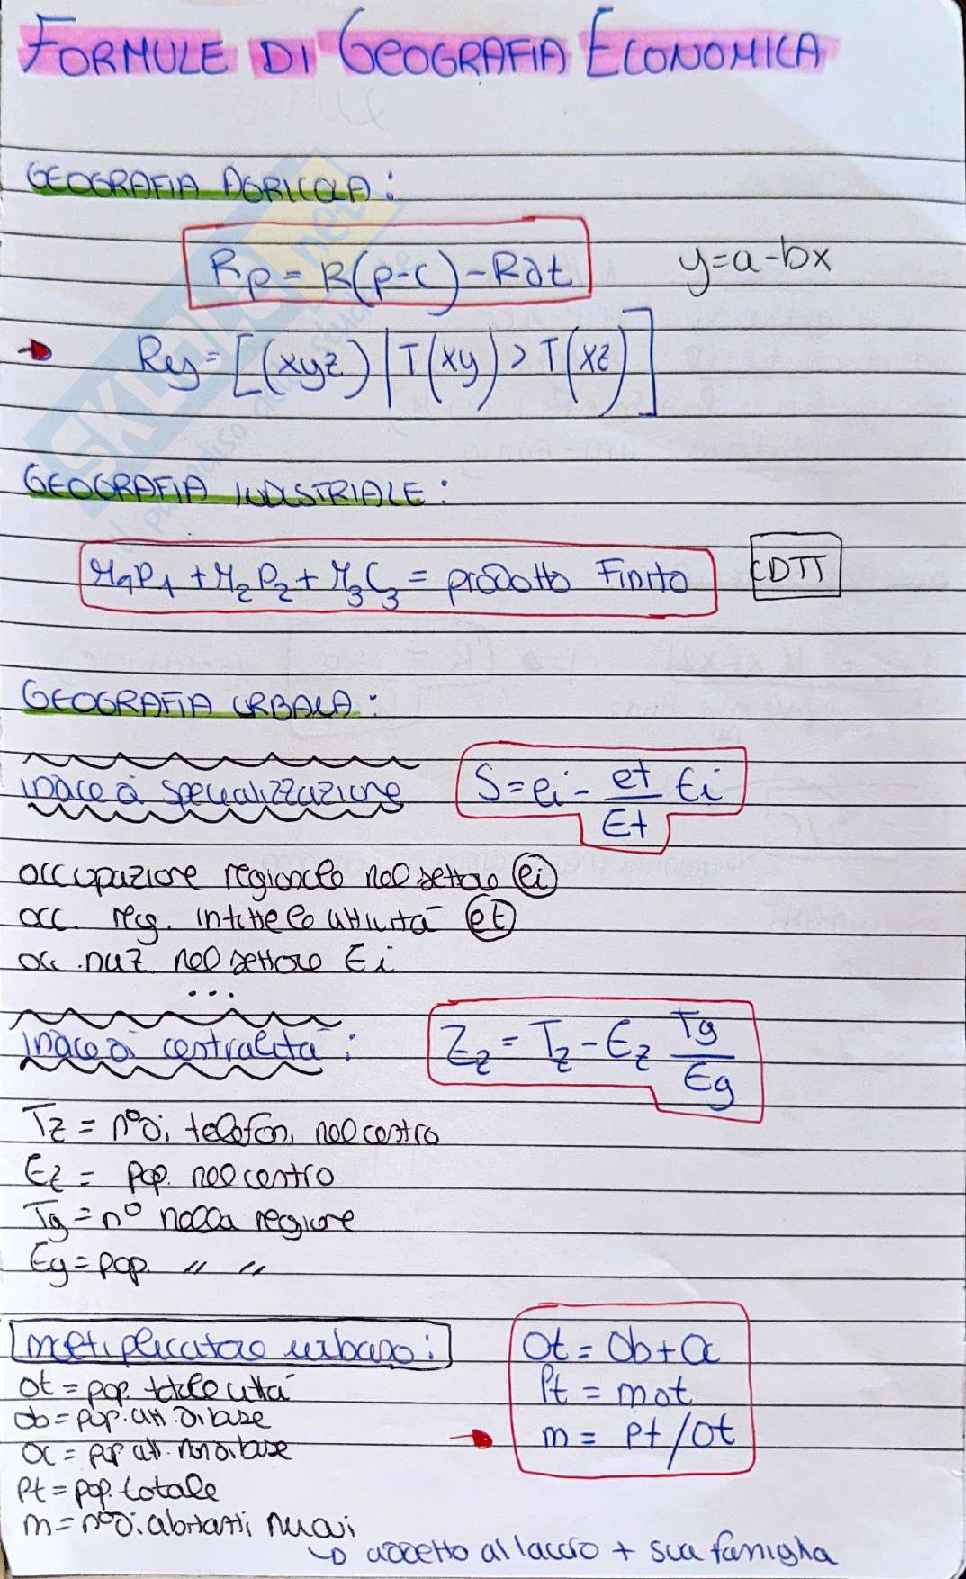 FORMULE DI GEOGRAFIA ECONOMICA
GEOGRAFIA AGRICOLA:
Rp = R(p-c) - Rdt y=a-bx
Rey = [(xyz) | T(xy) > T(xz)]
GEOGRAFIA INDUSTRIALE:
M1P1 + M2P2 + M3C3 = prodotto Finito CDTT
GEOGRAFIA URBANA:
indice di specializzazione S = ei - et/Et Ei
occupazione regionale nel settore ei
occ. reg. in tutte le attività et
occ. naz nel settore Ei
...
indice di centralità: Zz = Tz - Ez Tg/Eg
Tz = n° di telefoni nel centro
Ez = pop. nel centro
Tg = n° nella regione
Eg = pop " "
moltiplicatore urbano: Ot = Ob + Oc
Ot = pop. totale città Pt = mot
Ob = pop. att. di base m = Pt/Ot
Oc = pop att. non di base
Pt = pop. totale
m = n° di abitanti nuovi
→ addetto al laccio + sua famiglia